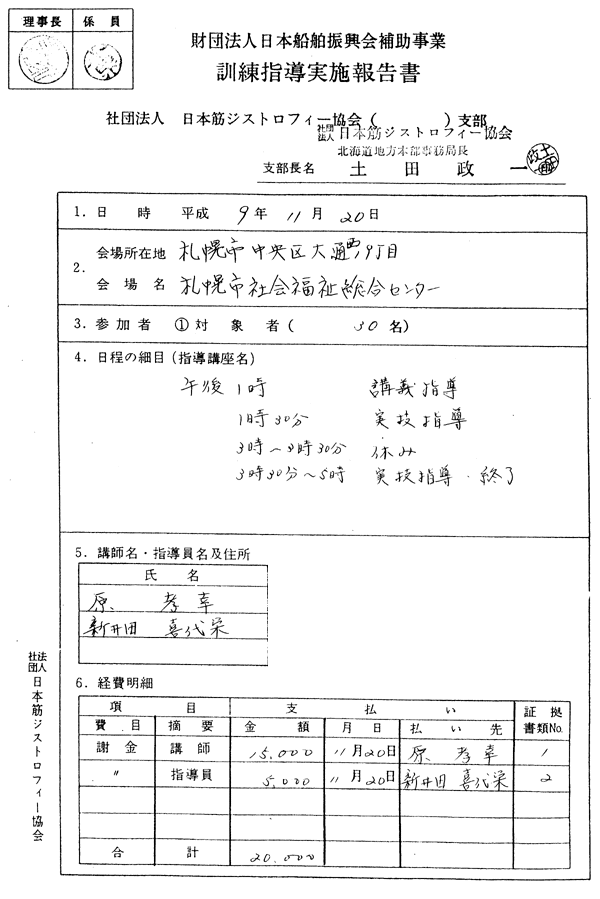 理事長 係員
財団法人日本船舶振興会補助事業
訓練指導実施報告書
社団法人 日本筋ジストロフィー協会( )支部
社団法人日本筋ジストロフィー協会
北海道地方本部事務局長
支部長名 土田政一
1.日時 平成 9年 11月 20日
2.
会場所在地 札幌市中央区大通西19丁目
会場名 札幌市社会福祉総合センター
3.参加者 ①対象者( 30名)
4.日程の細目(指導講座名)
午後 1時 講義指導
1時30分 実技指導
3時~3時30分 休み
3時30分~5時 実技指導・終了
5.講師名・指導員名及住所
氏名
原 孝幸
新井田 喜代栄
6.経費明細
項目 支払い 証拠書類No.
費目 摘要 金額 月日 払い先
謝金 講師 15,000 11月20日 原 孝幸 1
〃 指導員 5,000 11月20日 新井田 喜代栄 2
合計 20,000
社団法人日本筋ジストロフィー協会